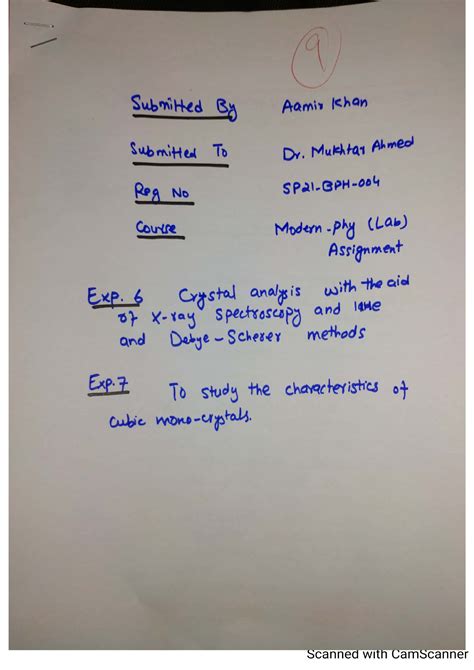 9
Submitted By Aamir Khan
Submitted To Dr. Mukhtar Ahmed
Reg No SP21-BPH-004
Course Modern-phy (Lab)
Assignment
Exp. 6 Crystal analysis with the aid
of X-ray spectroscopy and
and Debye-Scherer methods
Exp.7 To study the characteristics of
cubic mono-crystals.
Scanned with CamScanner